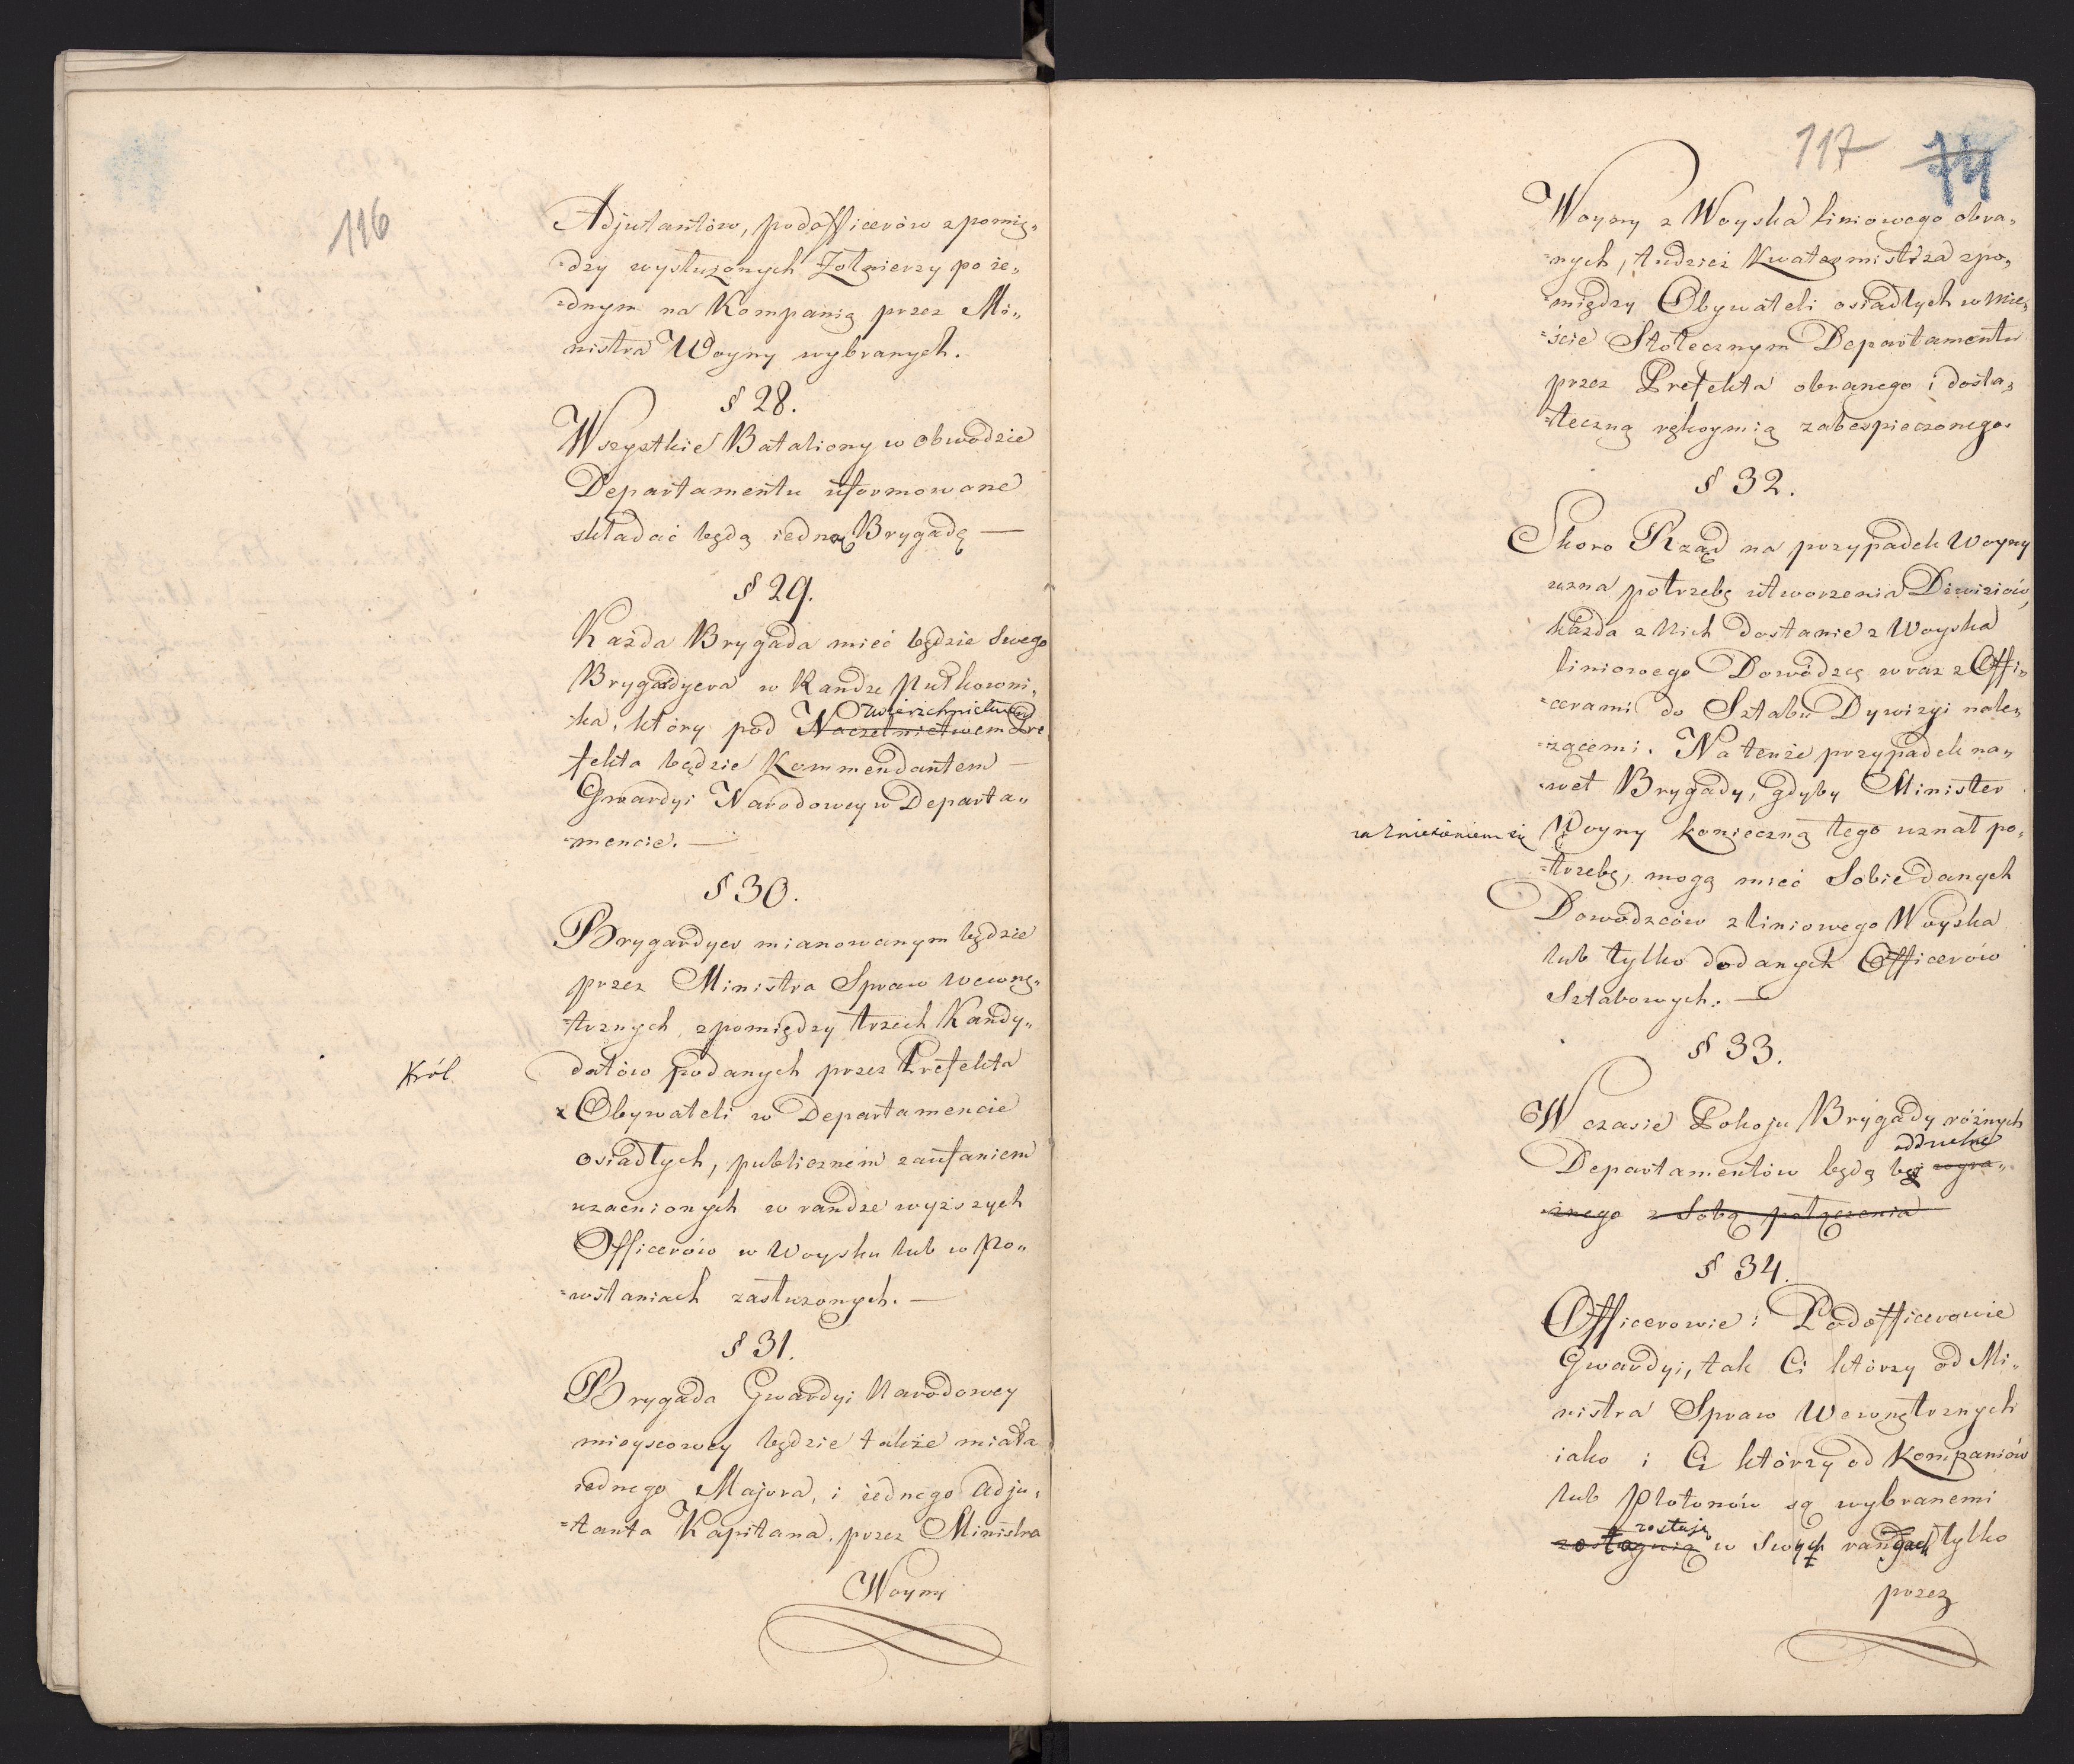 116
Adjutantów, podofficerów zpomię„
=dzy wysłużonych Żołnierzy po ie„
=dnym na Kompanią przez Mi„
nistra Woyny wybranych.
§ 28.
Wszystkie Bataliony w obwodzie
Departamentu uformowane
składać będą iedną Brygadę —
§ 29.
Każda Brygada mieć będzie swego
Brygadyera w Randze Pułkowni„
zwierzchnictwem
ka, który pod Naczelnictwem Pre
fekta będzie Kommendantem —
Gwardyi Narodowey w Departa„
=mencie. —
§ 30.
Brygardyer mianowanym będzie
przez Ministra Spraw wewnę„
trznych zpomiędzy trzech Kandy„
Król
datów podanych przez Prefekta
z Obywateli w Departamencie
osiadłych, publicznem zaufaniem
uzacnionych w randze wyższych
Officerów w Woysku lub w Po„
=wstaniach zasłużonych. —
§ 31.
Brygada Gwardyi Narodowey
mieyscowey będzie także miała
iednego Majora, i iednego Adju„
=tanta Kapitana, przez Ministra
Woyny
117 74
Woyny z Woyska liniowego obra„
=nych, tudzież Kwatermistrza zpo„
=między Obywateli osiadłych w Mie„
=ście Stołecznym Departamentu
przez Prefekta obranego i dosta„
=teczną rękoymią zabezpieczonego.
§ 32.
Skoro Rząd na przypadek Woyny
uzna potrzebę utworzenia Diwiziów,
każda z Nich dostanie z Woyska
liniowego Dowódzcę wraz z Offi„
=cerami do Sztabu Dywizyi nale„
=żącemi. Na tenże przypadek na„
=wet Brygady, gdyby Minister
za zniesieniem się
Woyny konieczną tego uznał po„
=trzebę, mogą mieć sobie danych
Dowódzców z liniowego Woyska
lub tylko dodanych Officerów
Sztabowych. —
§ 33.
W czasie Pokoju Brygady różnych
oddzielne
Departamentów będą bez wyra„
=źnego z sobą połączenia
§ 34.
Officerowie i Podofficerowie
Gwardyi, tak Ci którzy od Mi„
nistra Spraw Wewnętrznych
iako i Ci którzy od Kompaniów
lub Plotonów są wybranemi
zostają
zostaną w swych rangach tylko
przez